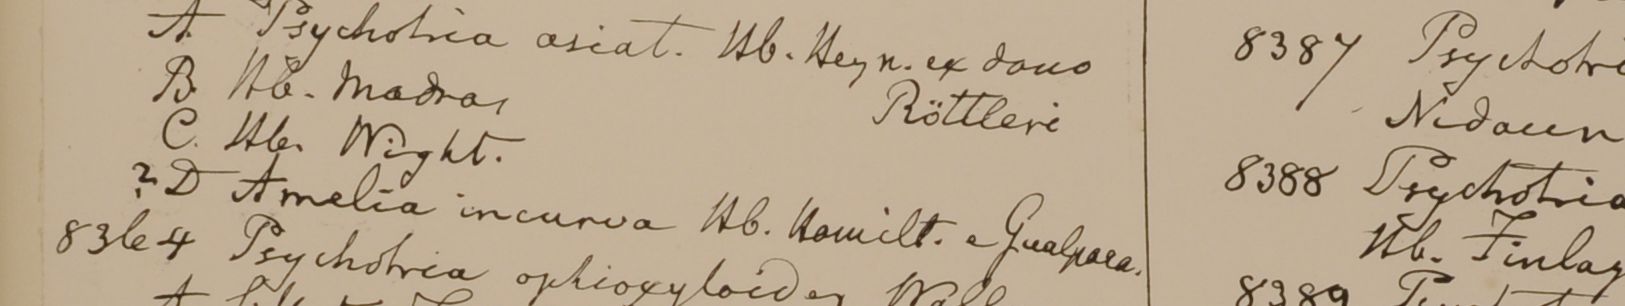 A. Psychotria asiat. Hb. Heyn. ex dono
Röttleri
B. Hb. Madras
C. Hb. Wight.
? D Amelia incurva Hb. Hamilt. e Gualpara.
8364 Psychotria ophioxyloides Wall
A
8387 Psychotri
Nidaun
8388 Psychotria
Hb. Finlay
8389